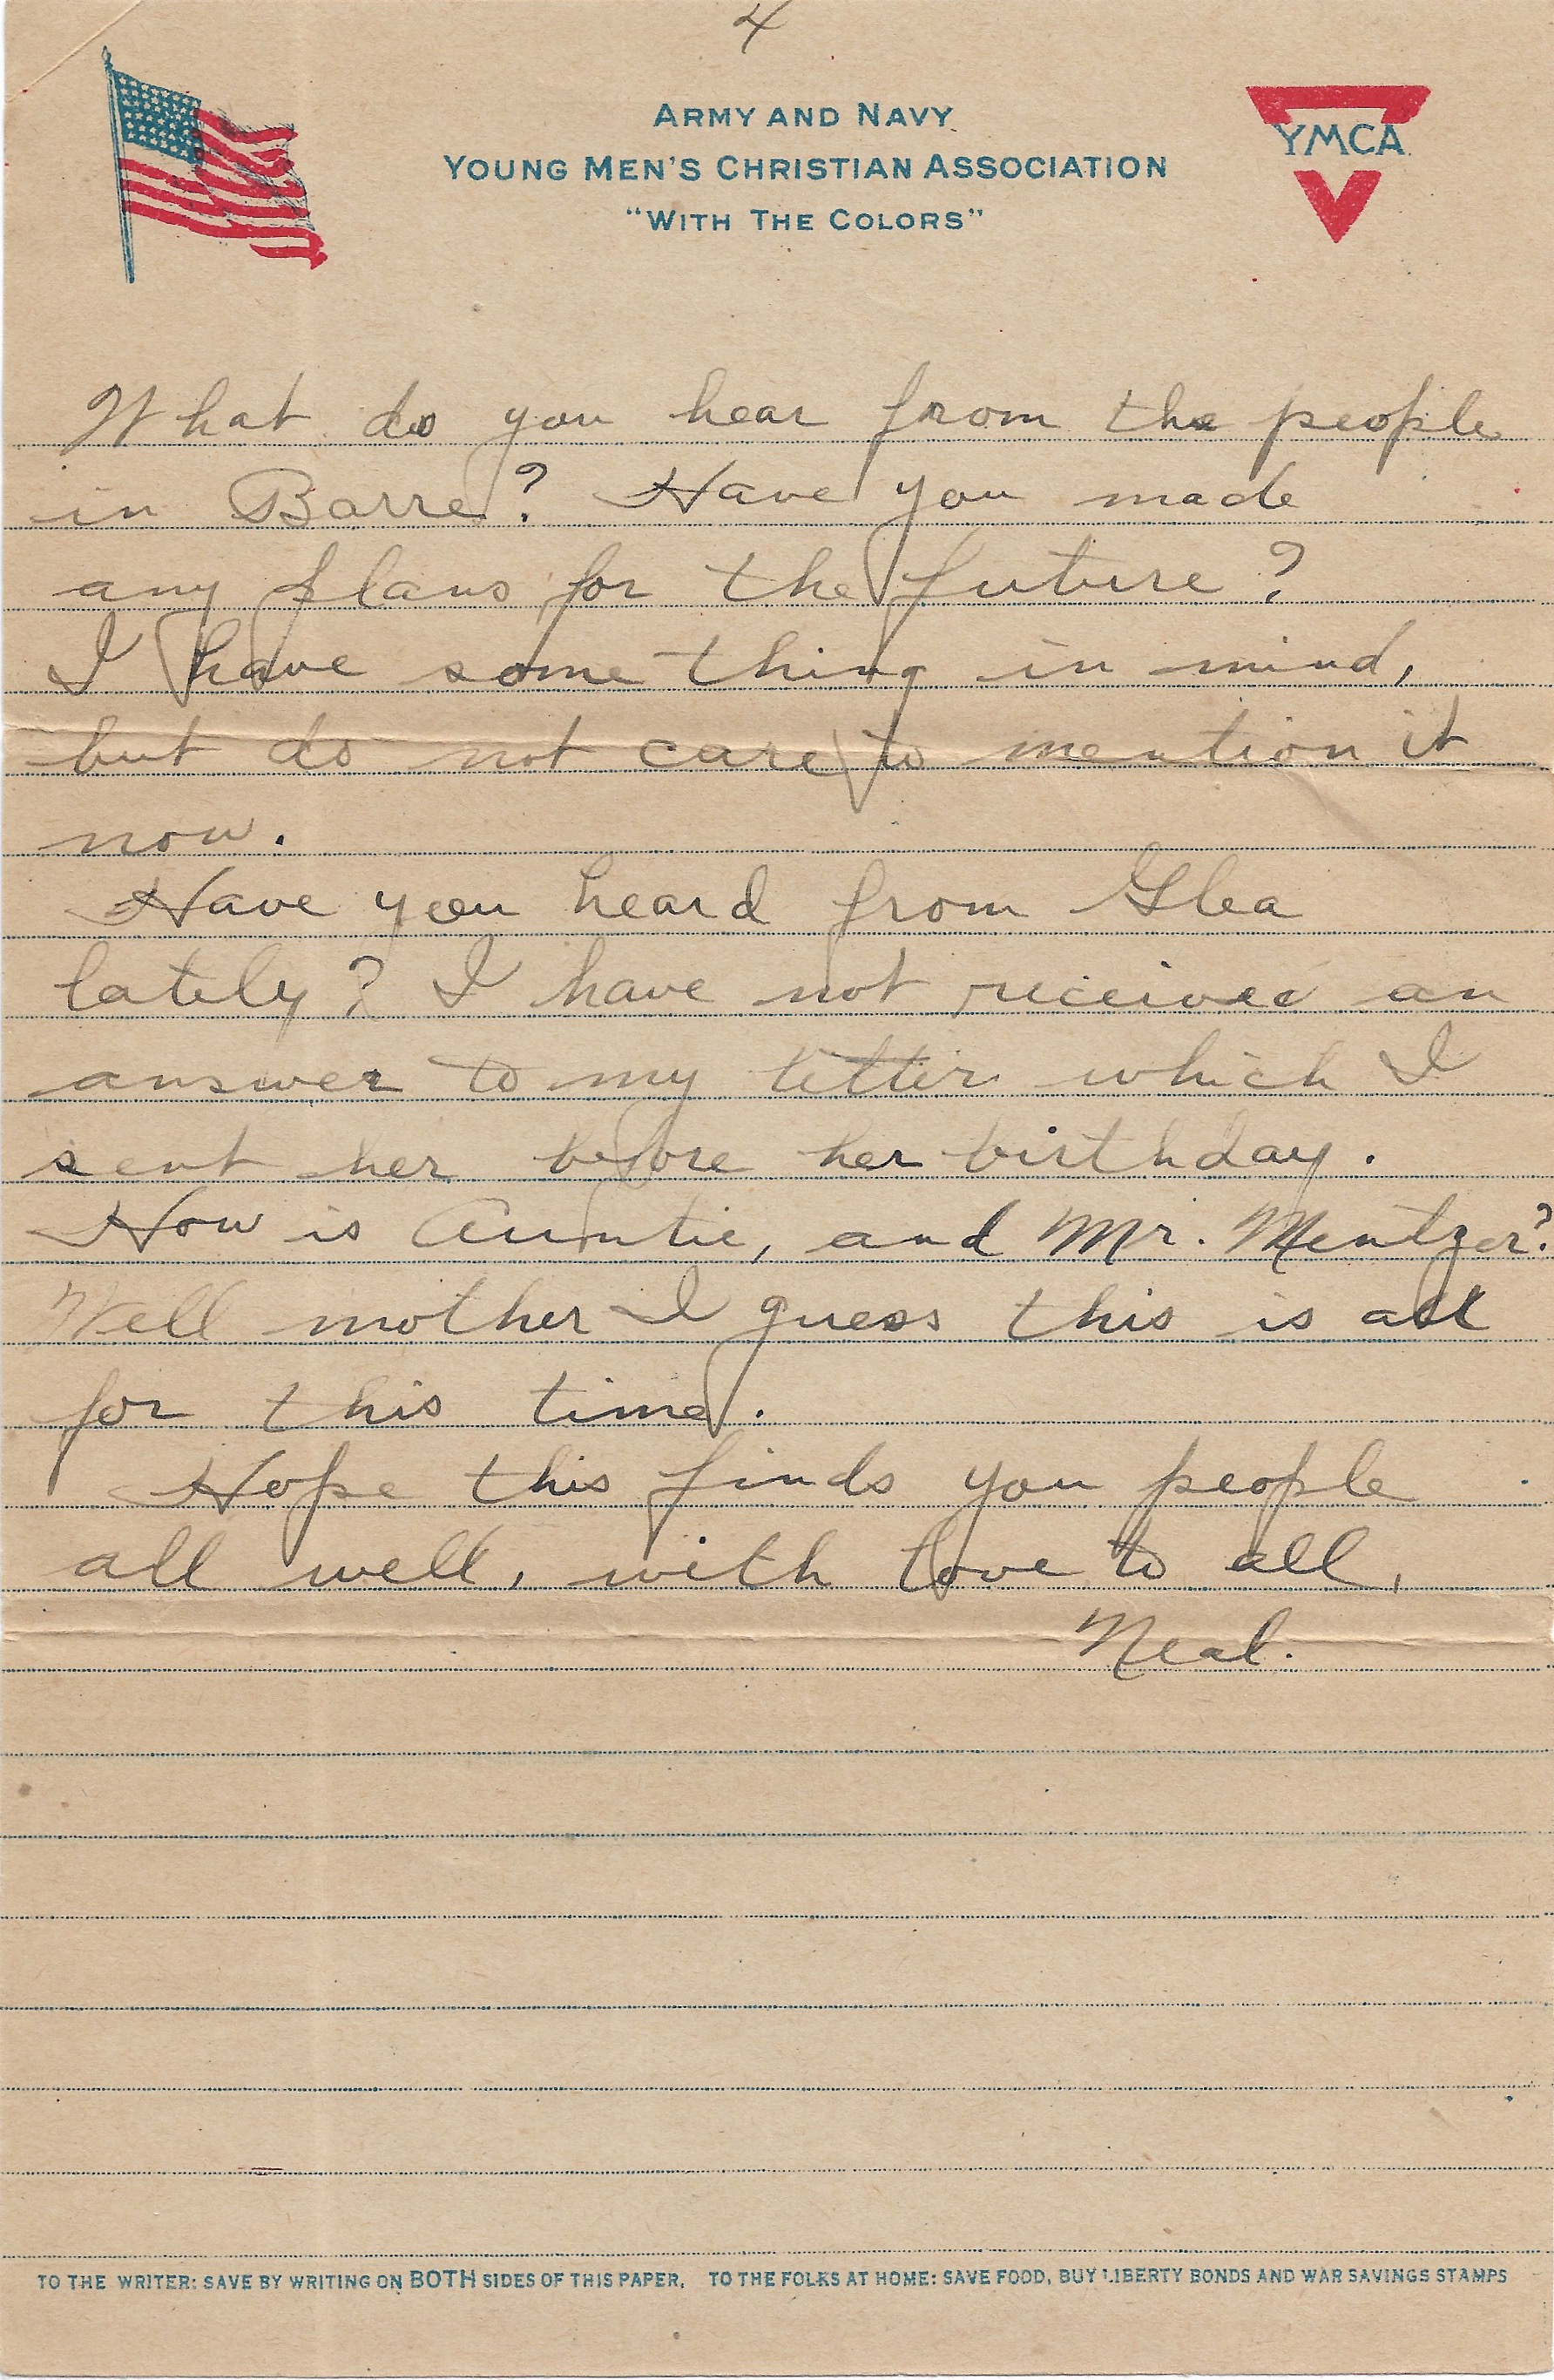 4
ARMY AND NAVY
YOUNG MEN'S CHRISTIAN ASSOCIATION
"WITH THE COLORS"
YMCA
What do you hear from the people
in Barre? Have you made
any plans for the future?
I have some thing in mind,
but do not care to mention it
now.
Have you heard from Glea
lately? I have not received an
answer to my letter which I
sent her before her birthday.
How is Auntie, and Mr. Mentzer?
Well mother I guess this is all
for this time.
Hope this finds you people
all well, with love to all,
Neal.
TO THE WRITER: SAVE BY WRITING ON BOTH SIDES OF THIS PAPER. TO THE FOLKS AT HOME: SAVE FOOD, BUY LIBERTY BONDS AND WAR SAVINGS STAMPS